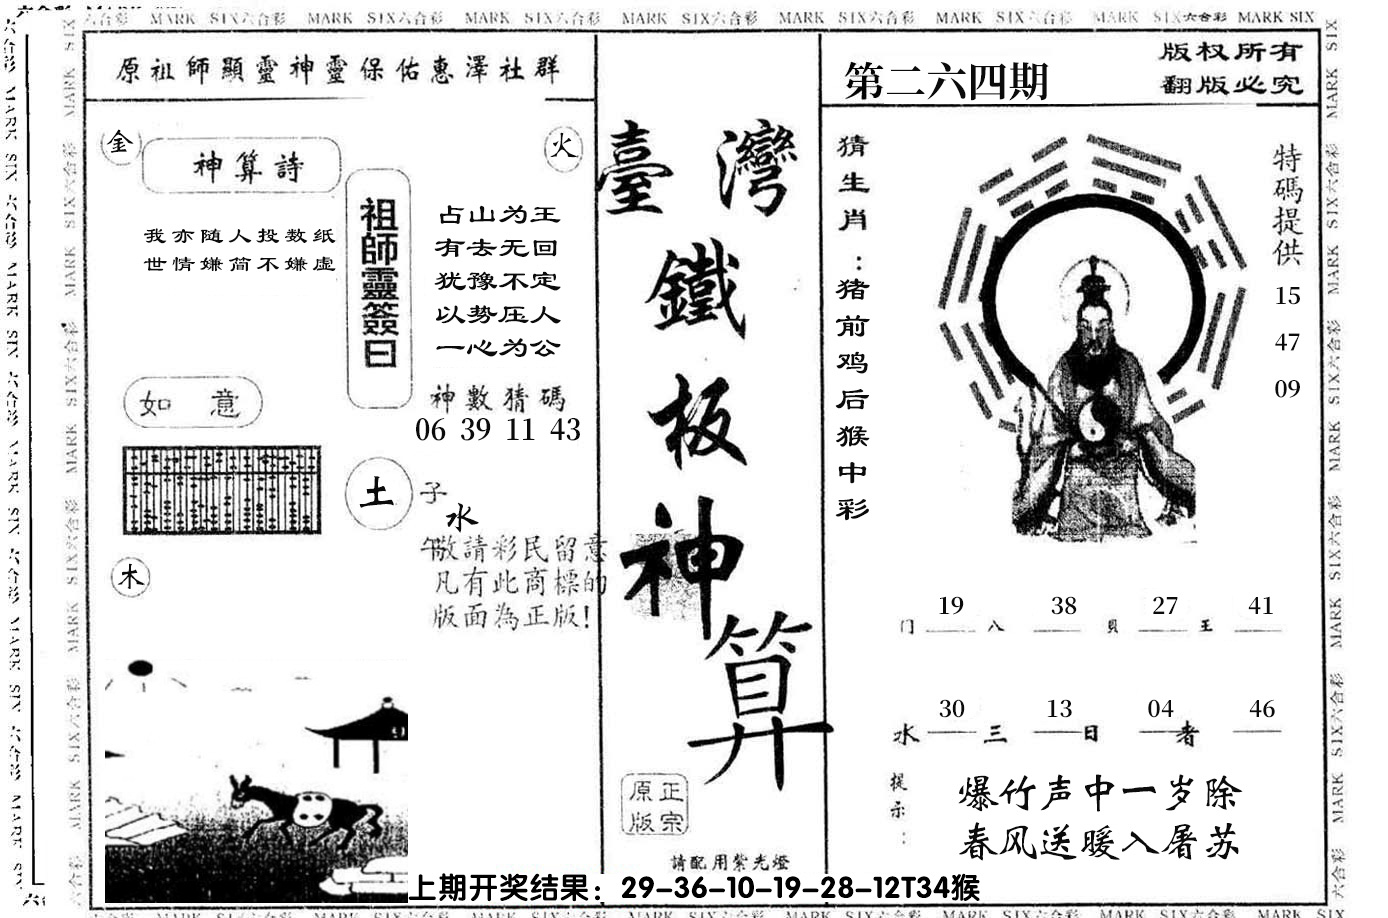 MARK SIX六合彩 MARK SIX六合彩 MARK SIX六合彩 MARK SIX六合彩 MARK SIX六合彩 MARK SIX六合彩 MARK SIX六合彩 MARK SIX
原祖師顯靈神靈保佑惠澤社群
金
神算詩
火
我亦随人投数纸
世情嫌简不嫌虚
祖師靈簽曰
占山为王
有去无回
犹豫不定
以势压人
一心为公
神數猜碼
06 39 11 43
如意
土
子
水
午
木
敬請彩民留意
凡有此商標的
版面為正版!
臺灣
鐵
板
神
算
正宗
原版
請配用紫光燈
第二六四期
版权所有
翻版必究
猜生肖:猪前鸡后猴中彩
特碼提供
15
47
09
19 38 27 41
门 八 贝 王
30 13 04 46
水 三 日 者
提示:
爆竹声中一岁除
春风送暖入屠苏
上期开奖结果：29-36-10-19-28-12T34猴